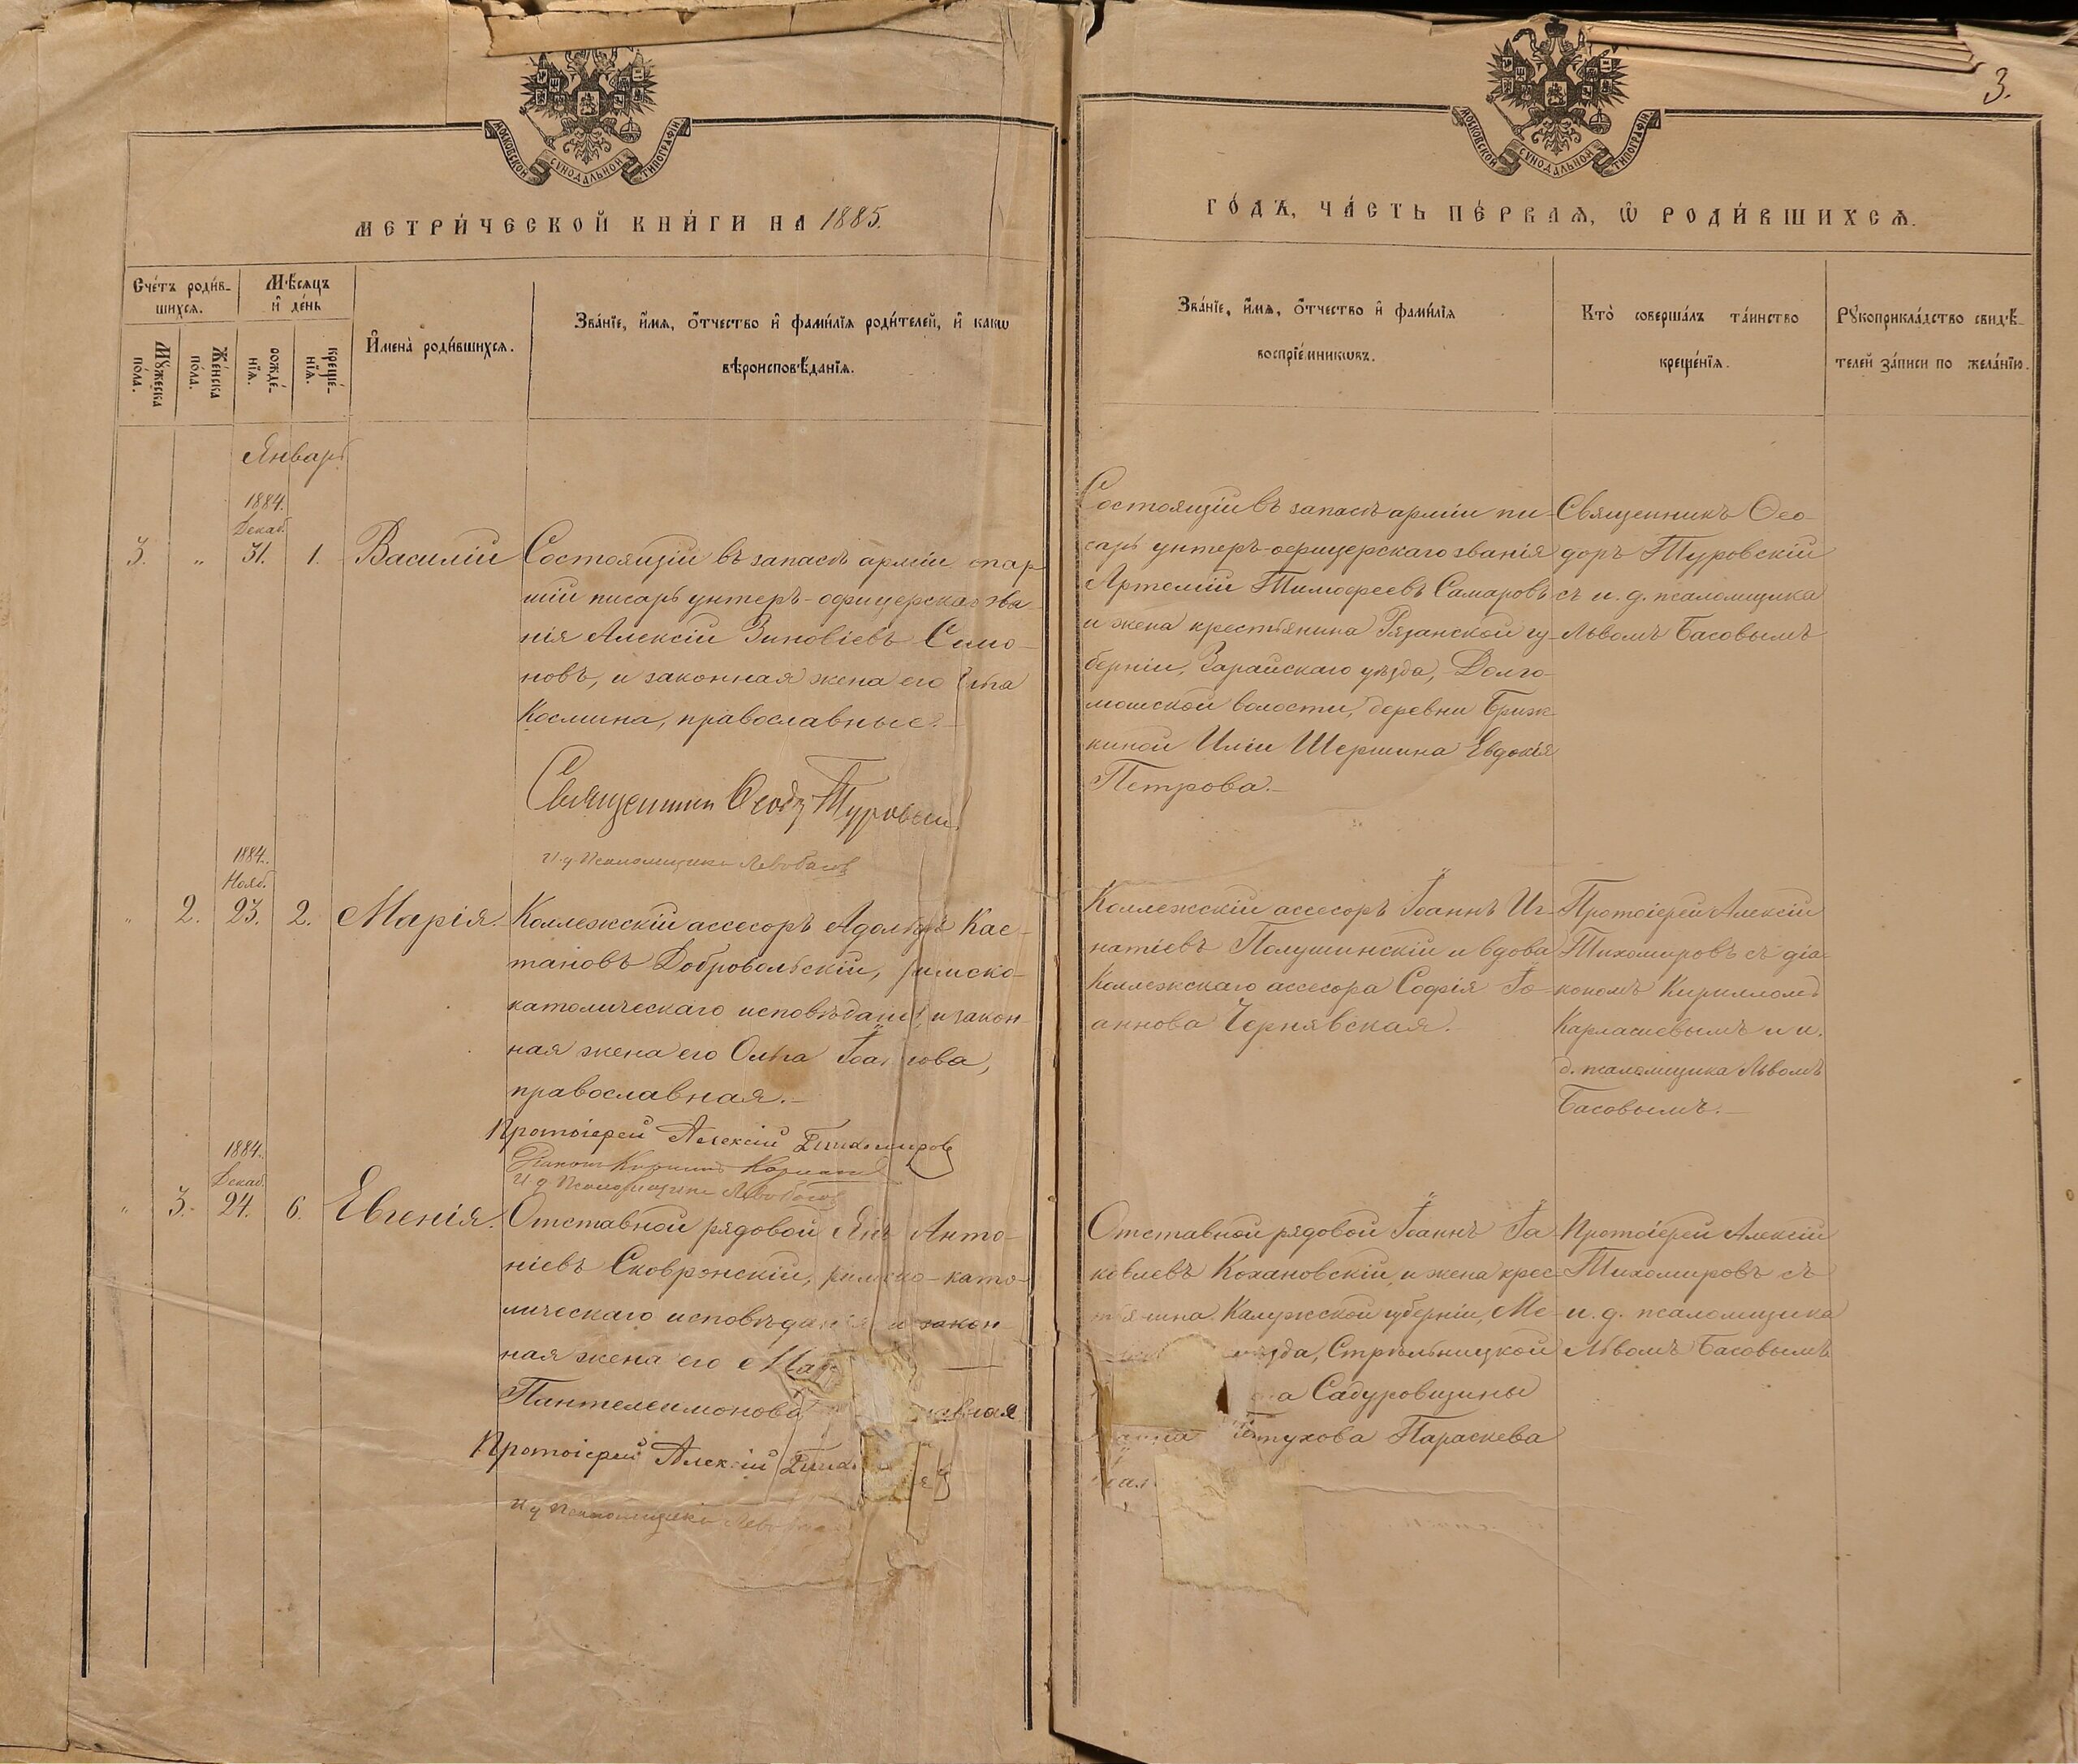 3.
МОСКОВСКОЙ СѴНОДАЛЬНОЙ ТИПОГРАФІИ
МЕТРИ́ЧЕСКОЙ КНИ́ГИ НА 1885.
Сче́тъ роди́в-
шихсѧ.
Мѣ́сѧцъ
и҆ де́нь
Мꙋ́жеска
по́ла.
Же́нска
по́ла.
рожде́-
нїѧ.
креще́-
нїѧ.
И҆мена̀ роди́вшихсѧ.
Зва́нїе, и҆́мѧ, ѻ҆́тчество и҆ фами́лїѧ роди́телей, и҆ какѡ
вѣроисповѣ́данїѧ.
Январь
1884.
Декаб.
3. „ 31. 1. Василій
Состоящій въ запасѣ арміи стар
шій писарь унтеръ-офицерскаго зва
нія Алексій Зиновіевъ Симо-
новъ, и законная жена его
Космина, православные.-
Священникъ Ѳеодоръ Туровскій
И. д. Псаломщика Левъ Басовъ
1884.
Нояб.
„ 2. 23. 2. Марія.
Коллежскій ассесоръ Адольфъ Кас-
тановъ Добровольскій, римско-
католическаго исповѣданія, и закон-
ная жена его Ольга Іоаннова,
православная.-
Протоіерей Алексій Тихомировъ
Діаконъ Кириллъ
И д Псаломщика Левъ Басовъ
1884.
Декаб.
„ 3. 24. 6. Евгенія.
Отставной рядовой Янъ Анто-
ніевъ Сковронскій, римско-като-
лическаго исповѣданія и закон-
ная жена его
Пантелеимонова
Протоіерей Алексій
И д Псаломщика Левъ
МОСКОВСКОЙ СѴНОДАЛЬНОЙ ТИПОГРАФІИ
ГО́ДЪ, ЧА́СТЬ ПЕ́РВАѦ, Ѡ҆ РОДИ́ВШИХСѦ.
Зва́нїе, и҆́мѧ, ѻ҆́тчество и҆ фами́лїѧ
воспрїе́мникѡвъ.
Кто̀ соверша́лъ та́инство
креще́нїѧ.
Рꙋкоприкла́дство свидѣ́-
телей за́писи по жела́нїю.
Состоящій въ запасѣ арміи пи-
сарь унтеръ-офицерскаго званія
Артемій Тимофеевъ Самаровъ
и жена крестьянина Рязанской гу-
берніи, Зарайскаго уѣзда, Долго-
мошской волости, деревни Бриж-
киной Иліи Шершина Евдокія
Петрова.-
Священникъ Ѳео-
доръ Туровскій
съ и. д. псаломщика
Львомъ Басовымъ
Коллежскій ассесоръ Іоаннъ Иг-
натіевъ Полушинскій и вдова
Коллежскаго ассесора Софія Іо-
аннова Чернявская.-
Протоіерей Алексій
Тихомировъ съ діа-
кономъ Кирилломъ
и и.
д. псаломщика Львомъ
Басовымъ.-
Отставной рядовой Іоаннъ Іа-
ковлевъ Кохановскій, и жена крес-
Калужской губерніи, Ме-
Стрѣльницкой
Садуровщины
Параскева
Протоіерей Алексій
Тихомировъ съ
и. д. псаломщика
Львомъ Басовымъ